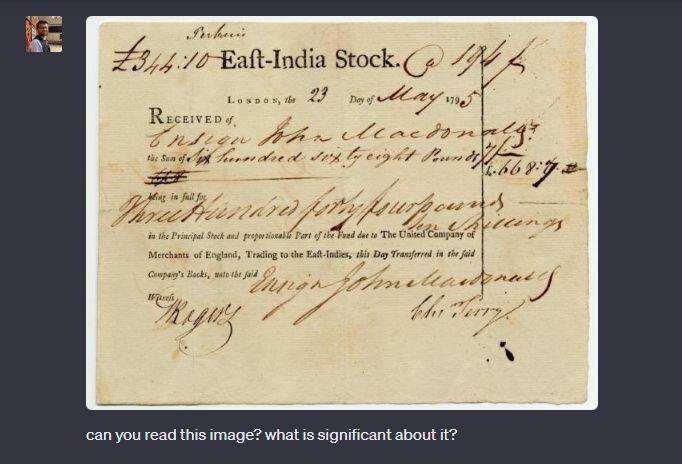 Perkins
£344:10 Eaſt-India Stock. @ 194
LONDON, the 23 Day of May 1795
RECEIVED of
Ensign John Macdonald
the Sum of Six hundred sixty eight Pounds 7/-
L. 668:7
being in full for
Three Hundred forty four pounds
Ten Shillings
in the Principal Stock and proportionable Part of the Fund due to The United Company of
Merchants of England, Trading to the Eaſt-Indies, this Day Transferred in the ſaid
Company's Books, unto the ſaid Ensign John Macdonald
Witneſs
Rogers
Terry
can you read this image? what is significant about it?